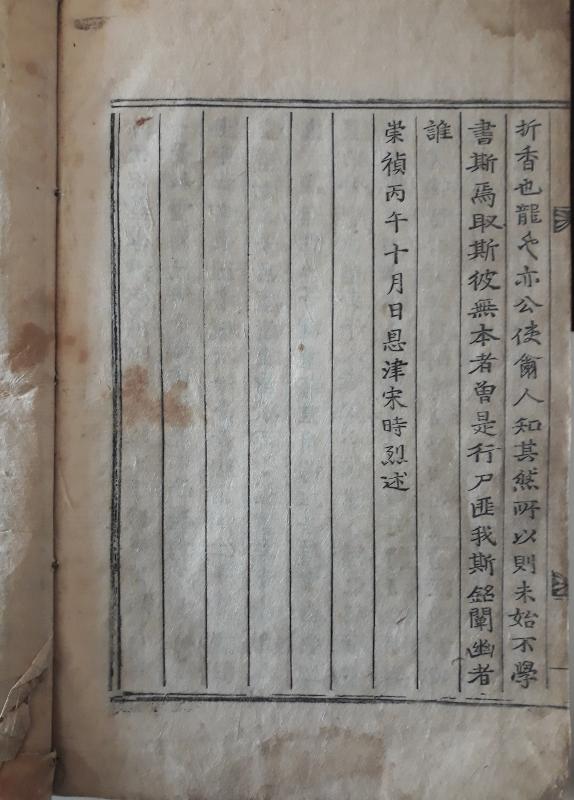 折香也龍亦公使爾人知其然所以則未始不學
書斯焉取斯彼無本者曾是行尸匪我斯銘闡幽者
誰
崇禎丙午十月日恩津宋時烈述